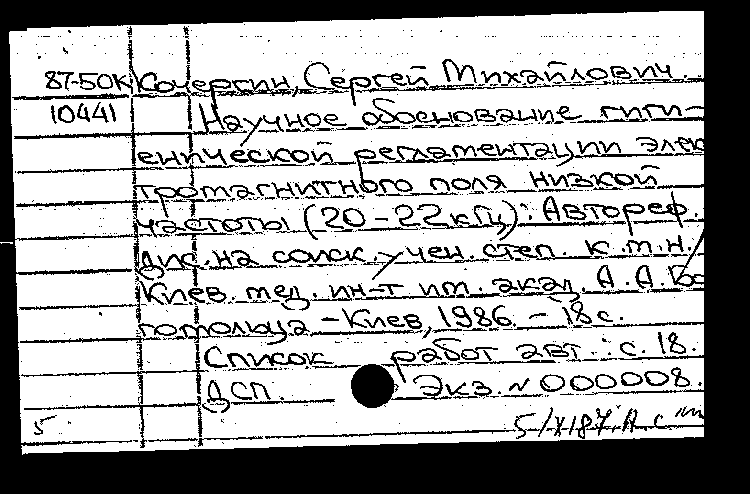 87-50К Кочергин, Сергей Михайлович.
10441 Научное обоснование гиги-
енической регламентации элек
тромагнитного поля низкой
частоты (20-22 кГц): Автореф.
дис. на соиск. учен. степ. к.м.н.
Киев. мед. ин-т им. акад. А.А. Бо
гомольца - Киев, 1986 - 18 с.
Список работ авт.: с. 18.
ДСП. Экз. № 000008.
5